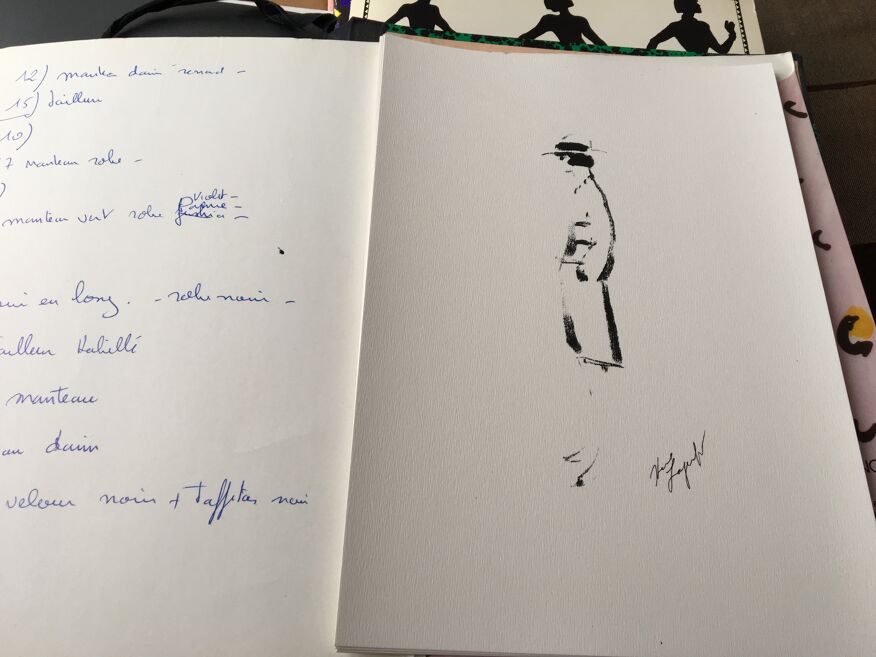 12) manteau daim renard -
15) Tailleur
10)
7 manteau robe -
)
manteau vert robe
Violet -
en long. - robe noire -
Tailleur Habillé
manteau
daim
velour noir + Taffetas noir